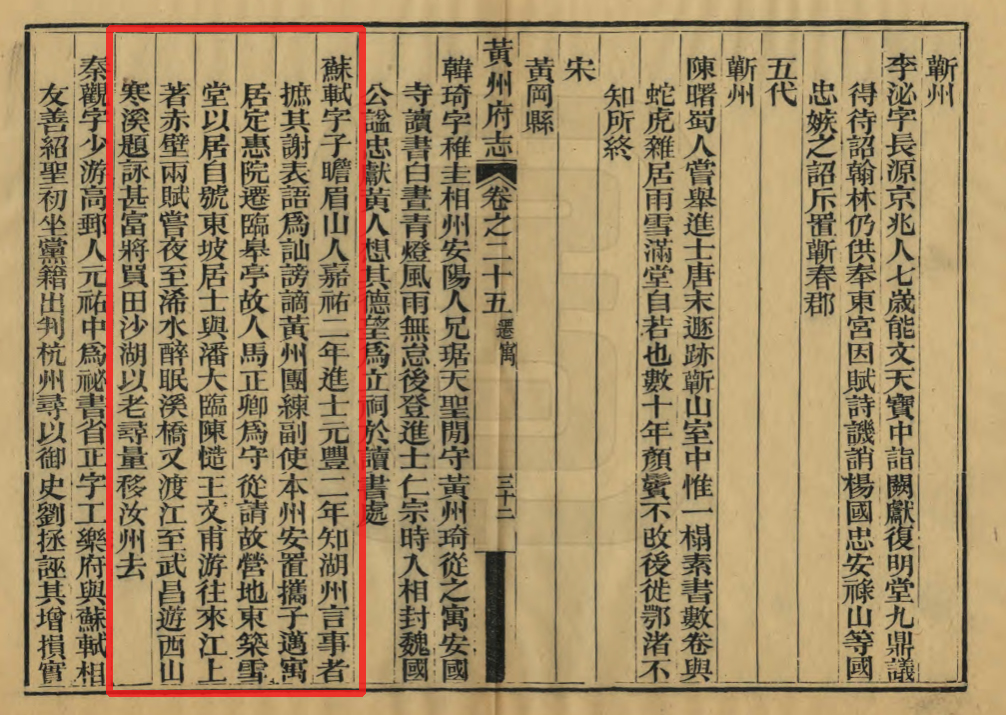 蘄州
李泌字長源京兆人七歲能文天寶中詣闕獻復明堂九鼎議
得待詔翰林仍供奉東宮因賦詩譏誚楊國忠安祿山等國
忠嫉之詔斥置蘄春郡
五代
蘄州
陳曙蜀人嘗舉進士唐末遯跡蘄山室中惟一榻素書數卷與
蛇虎雜居雨雪滿堂自若也數十年顏鬢不改後徙鄂渚不
知所終
宋
黃岡縣
黃州府志 卷之二十五 寓 三十二
韓琦字稚圭相州安陽人兄琚天聖閒守黃州琦從之寓安國
寺讀書白晝青燈風雨無怠後登進士仁宗時入相封魏國
公諡忠獻黃人想其德望為立祠於讀書處
蘇軾字子瞻眉山人嘉祐二年進士元豐二年知湖州言事者
摭其謝表語爲訕謗謫黃州團練副使本州安置攜子邁寓
居定惠院遷臨皋亭故人馬正卿爲守從請故營地東築雪
堂以居自號東坡居士與潘大臨陳慥王文甫游往來江上
著赤壁兩賦嘗夜至浠水醉眠溪橋又渡江至武昌遊西山
寒溪題詠甚富將買田沙湖以老尋量移汝州去
秦觀字少游高郵人元祐中爲祕書省正字工樂府與蘇軾相
友善紹聖初坐黨籍出判杭州尋以御史劉拯誣其增損實